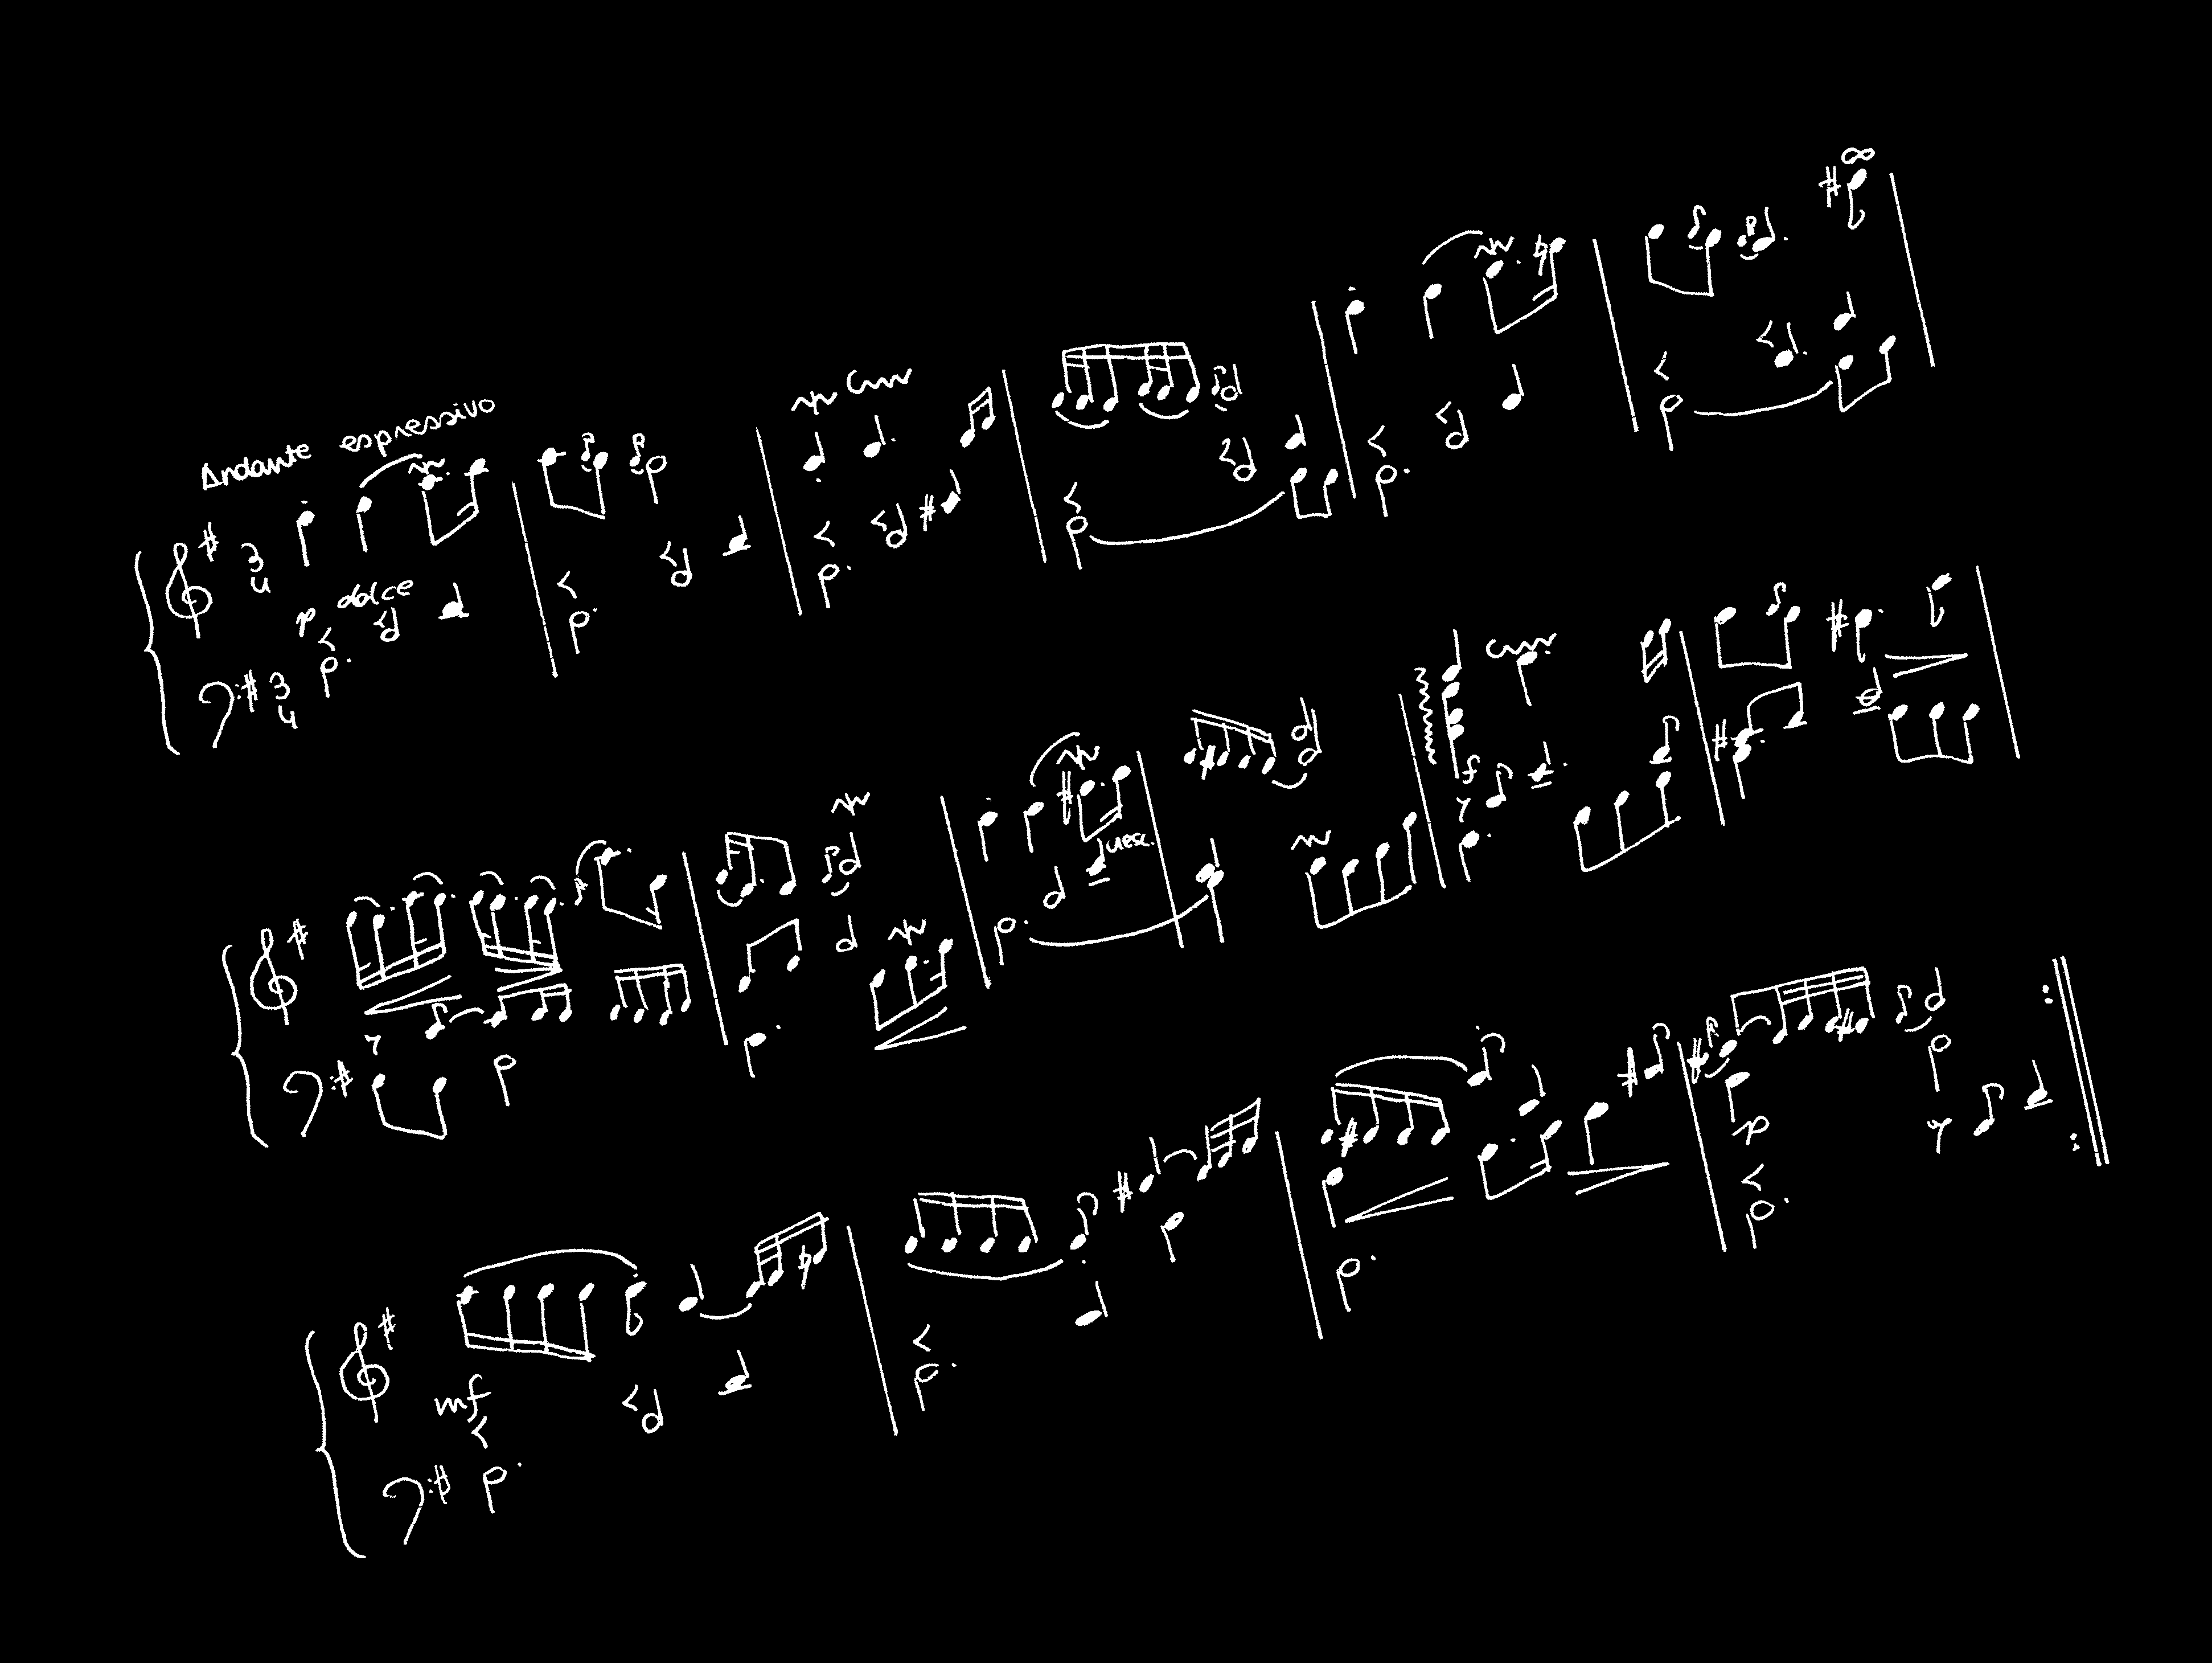 Andante espressivo
3
4
p dolce
3
4
cresc.
f
mf
p